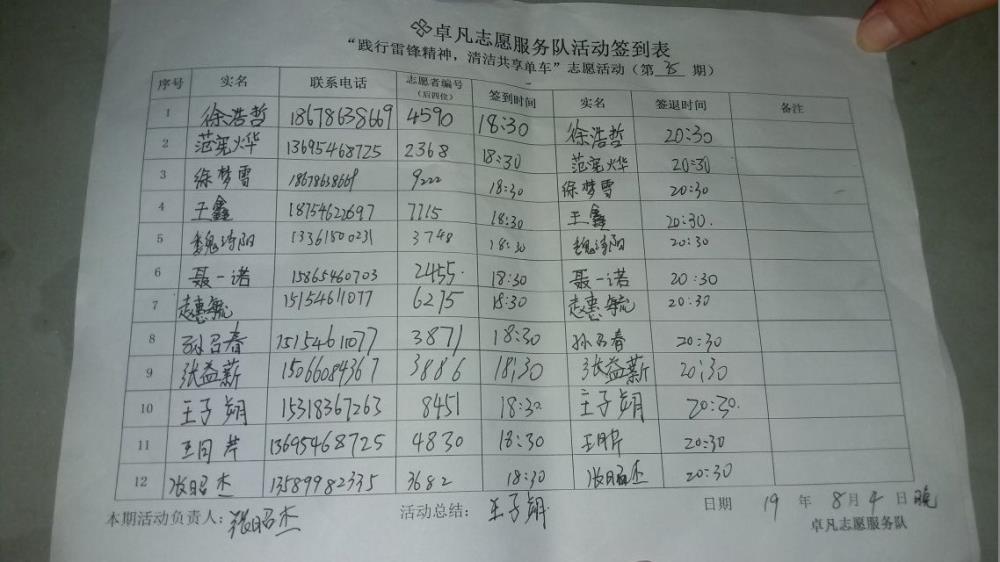 卓凡志愿服务队活动签到表
“践行雷锋精神，清洁共享单车”志愿活动（第 35 期）
序号 实名 联系电话 志愿者编号（后四位） 签到时间 实名 签退时间 备注
1 徐浩哲 18678638669 4590 18:30 徐浩哲 20:30
2 范宪烨 13695468725 2368 18:30 范宪烨 20:30
3 徐梦雪 18678638669 9222 18:30 徐梦雪 20:30
4 王鑫 18754622697 7715 18:30 王鑫 20:30.
5 魏诗阳 13361500231 3748 18:30 魏诗阳 20:30
6 聂一诺 15865460703 2455. 18:30 聂一诺 20:30
7 赵惠毓 15154611077 6275 18:30 赵惠毓 20:30
8 孙召春 15154611077 3871 18:30 孙召春 20:30
9 张益薪 15066084367 3886 18:30 张益薪 20:30
10 王子翔 15318367263 8451 18:30 王子翔 20:30.
11 王同芹 13695468725 4830 18:30 王同芹 20:30
12 张昭杰 13589982335 3682 18:30 张昭杰 20:30
本期活动负责人: 张昭杰 活动总结: 王子翔 日期 19 年 8 月 4 日 晚
卓凡志愿服务队